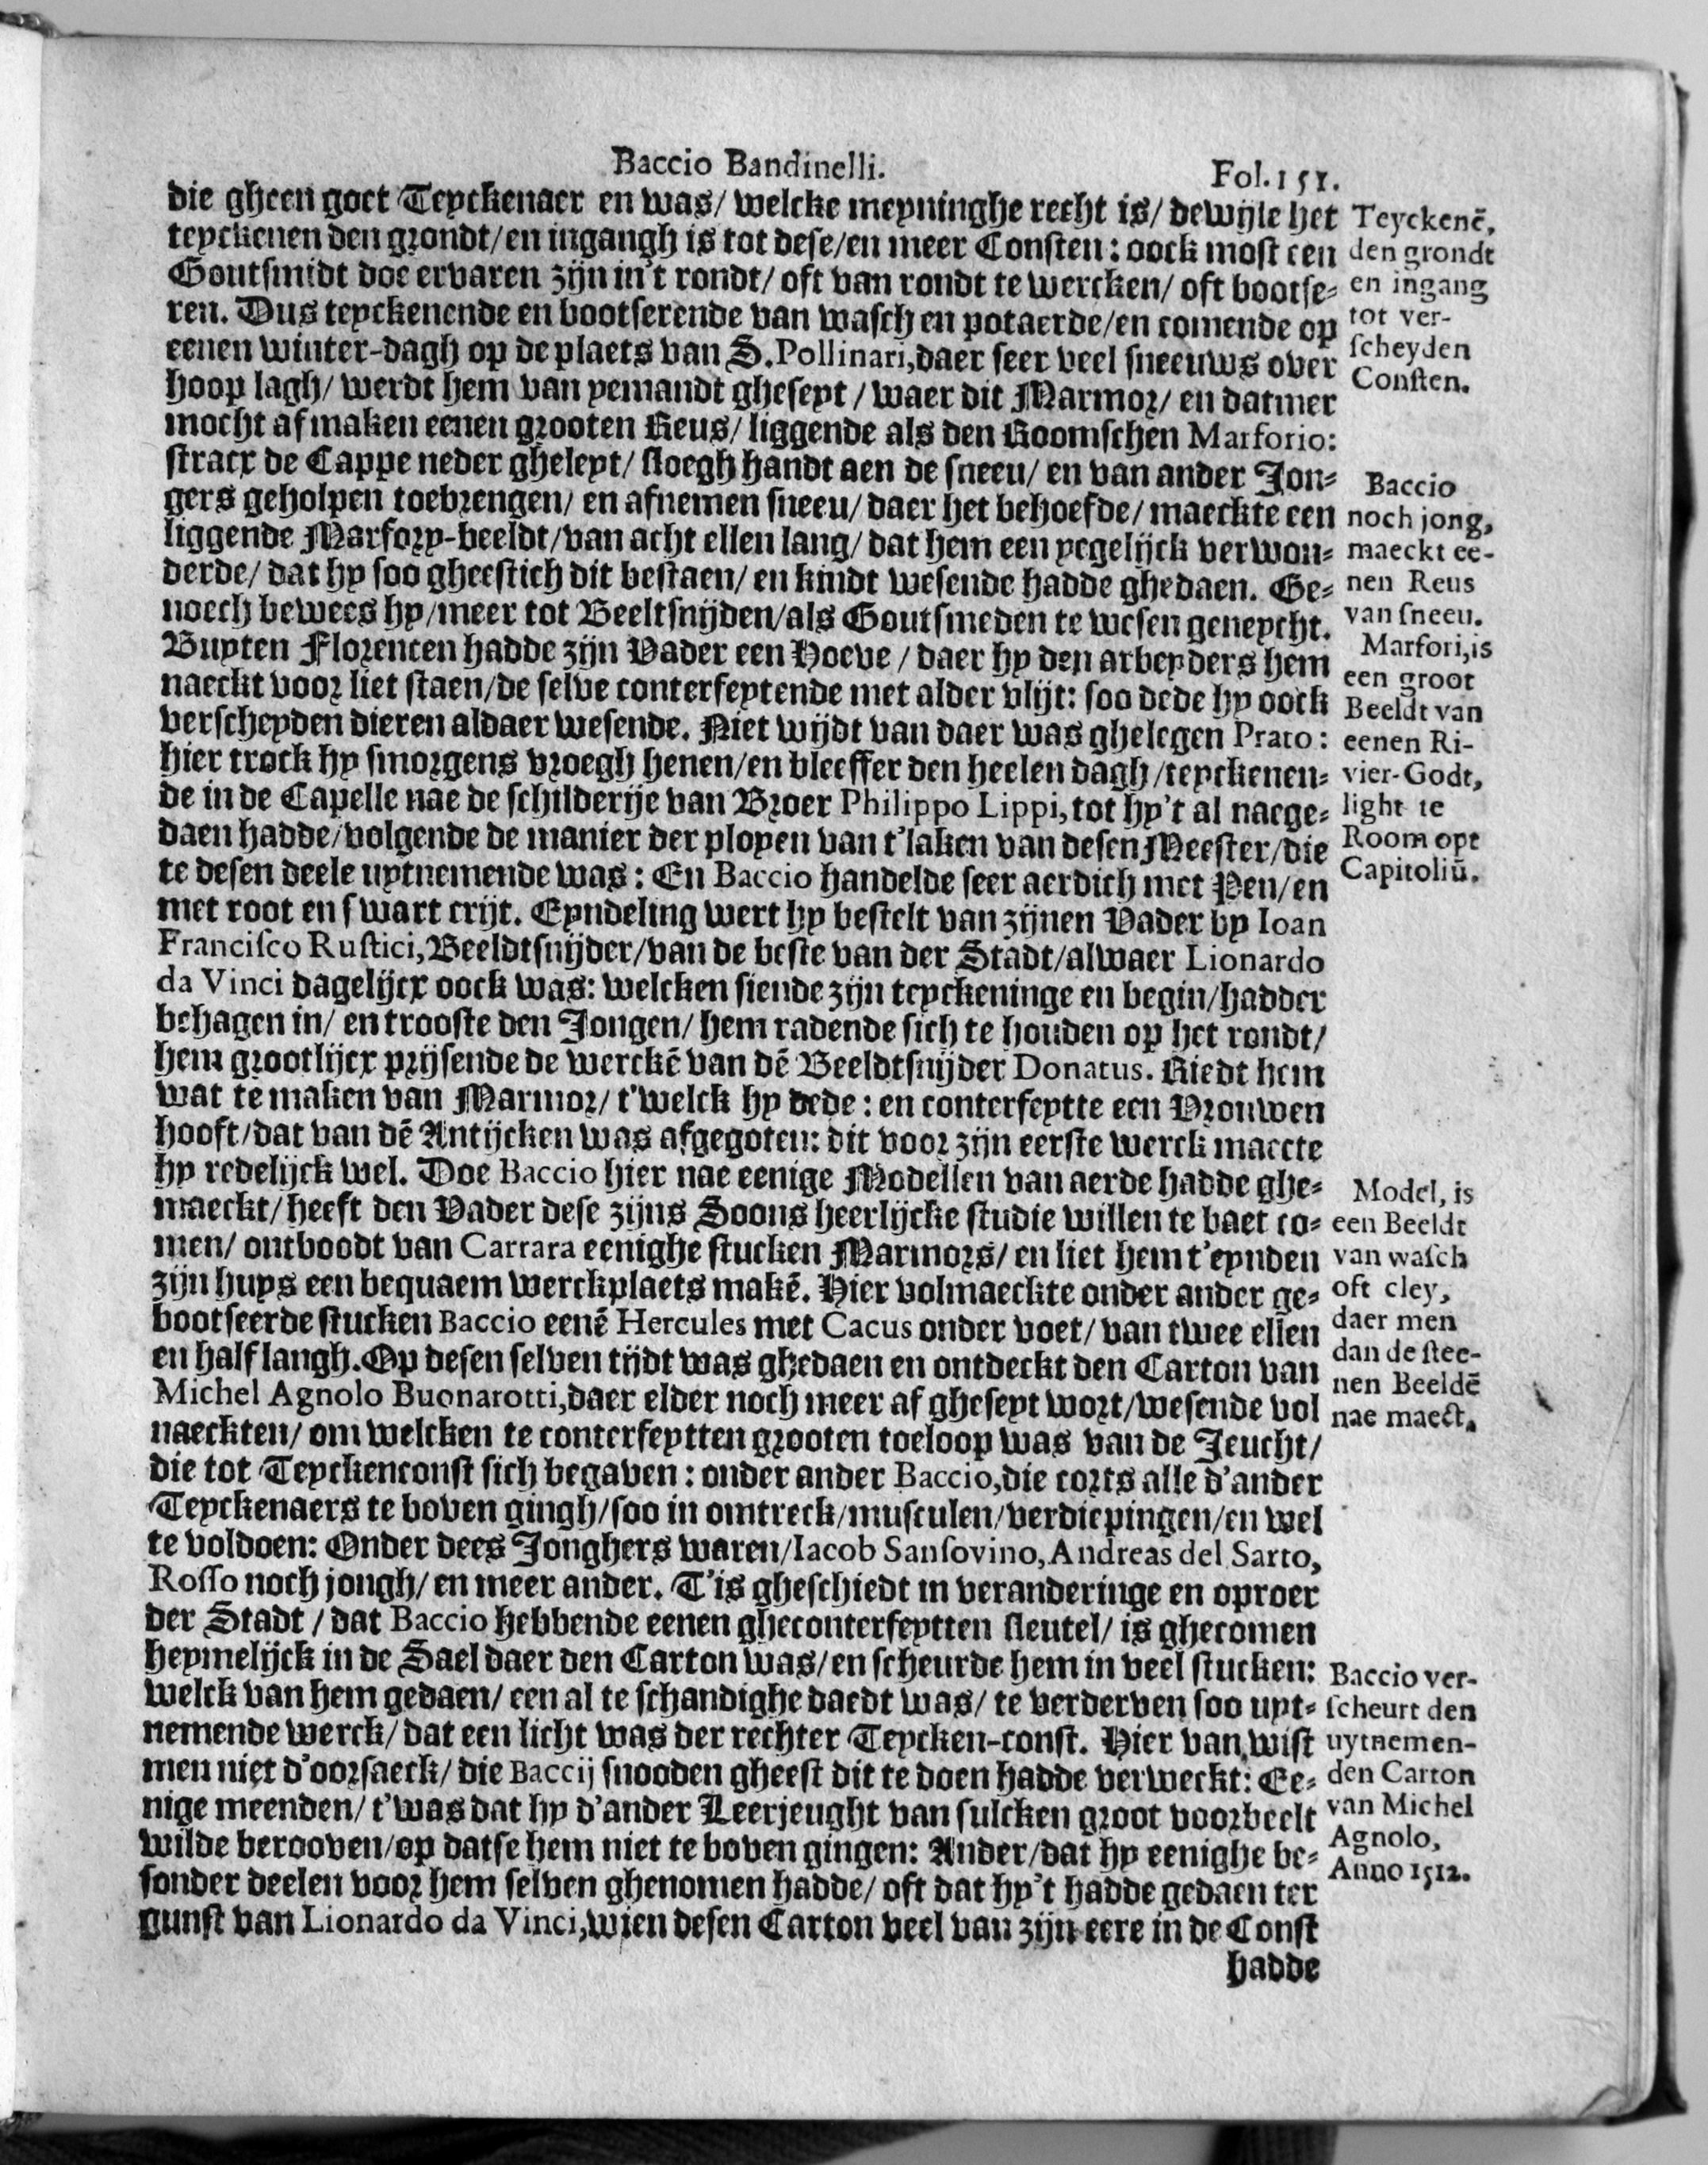 Baccio Bandinelli.
Fol. 151.
die gheen goet Teyckenaer en was/ welcke meyninghe recht is/ dewijle het
teyckenen den grondt/ en ingangh is tot dese/ en meer Consten: oock most een
Goutsmidt doe ervaren zijn in't rondt/ oft van rondt te wercken/ oft bootse-
ren. Dus teyckenende en bootserende van wasch en potaerde/ en comende op
eenen winter-dagh op de plaets van S. Pollinari, daer seer veel sneeuws over
hoop lagh/ werdt hem van yemandt gheseyt/ waer dit Marmor/ en datmer
mocht af maken eenen grooten Reus/ liggende als den Roomschen Marforio:
stracx de Cappe neder gheleyt/ sloegh handt aen de sneeu/ en van ander Jon-
gers geholpen toebrengen/ en afnemen sneeu/ daer het behoefde/ maeckte een
liggende Marfory-beeldt/ van acht ellen lang/ dat hem een yegelijck verwon-
derde/ dat hy soo gheestich dit bestaen/ en kindt wesende hadde ghedaen. Ge-
noech bewees hy/ meer tot Beeltsnijden/ als Goutsmeden te wesen geneycht.
Buyten Florencen hadde zijn Vader een Hoeve/ daer hy den arbeyders hem
naeckt voor liet staen/ de selve conterfeytende met alder vlijt: soo dede hy oock
verscheyden dieren aldaer wesende. Niet wijdt van daer was ghelegen Prato:
hier trock hy smorgens vroegh henen/ en bleeffer den heelen dagh/ teyckenen-
de in de Capelle nae de schilderije van Broer Philippo Lippi, tot hy't al naege-
daen hadde/ volgende de manier der ployen van t'laken van desen Meester/ die
te desen deele uytnemende was: En Baccio handelde seer aerdich met Pen/ en
met root en swart crijt. Eyndeling wert hy bestelt van zijnen Vader by Ioan
Francisco Rustici, Beeldtsnijder/ van de beste van der Stadt/ alwaer Lionardo
da Vinci dagelijcx oock was: welcken siende zijn teyckeninge en begin/ hadder
behagen in/ en trooste den Jongen/ hem radende sich te houden op het rondt/
hem grootlijcx prijsende de werckē van dē Beeldtsnijder Donatus. Riedt hem
wat te maken van Marmor/ t'welck hy dede: en conterfeytte een Vrouwen
hooft/ dat van dē Antijcken was afgegoten: dit voor zijn eerste werck maecte
hy redelijck wel. Doe Baccio hier nae eenige Modellen van aerde hadde ghe-
maeckt/ heeft den Vader dese zijns Soons heerlijcke studie willen te baet co-
men/ ontboodt van Carrara eenighe stucken Marmors/ en liet hem t'eynden
zijn huys een bequaem werckplaets makē. Hier volmaeckte onder ander ge-
bootseerde stucken Baccio eenē Hercules met Cacus onder voet/ van twee ellen
en half langh. Op desen selven tijdt was ghedaen en ontdeckt den Carton van
Michel Agnolo Buonarotti, daer elder noch meer af gheseyt wort/ wesende vol
naeckten/ om welcken te conterfeytten grooten toeloop was van de Jeucht/
die tot Teyckenconst sich begaven: onder ander Baccio, die corts alle d'ander
Teyckenaers te boven gingh/ soo in omtreck/ musculen/ verdiepingen/ en wel
te voldoen: Onder dees Jonghers waren/ Iacob Sansovino, Andreas del Sarto,
Rosso noch jongh/ en meer ander. T'is gheschiedt in veranderinge en oproer
der Stadt/ dat Baccio hebbende eenen gheconterfeytten sleutel/ is ghecomen
heymelijck in de Sael daer den Carton was/ en scheurde hem in veel stucken:
welck van hem gedaen/ een al te schandighe daedt was/ te verderven soo uyt-
nemende werck/ dat een licht was der rechter Teycken-const. Hier van wist
men niet d'oorsaeck/ die Baccij snooden gheest dit te doen hadde verweckt: Ee-
nige meenden/ t'was dat hy d'ander Leerjeught van sulcken groot voorbeelt
wilde berooven/ op datse hem niet te boven gingen: Ander/ dat hy eenighe be-
sonder deelen voor hem selven ghenomen hadde/ oft dat hy't hadde gedaen ter
gunst van Lionardo da Vinci, wien desen Carton veel van zijn eere in de Const
hadde
Teyckenē,
den grondt
en ingang
tot ver-
scheyden
Consten.
Baccio
noch jong,
maeckt ee-
nen Reus
van sneeu.
Marfori, is
een groot
Beeldt van
eenen Ri-
vier-Godt,
light te
Room opt
Capitoliū.
Model, is
een Beeldt
van wasch
oft cley,
daer men
dan de stee-
nen Beeldē
nae maect.
Baccio ver-
scheurt den
uytnemen-
den Carton
van Michel
Agnolo,
Anno 1512.